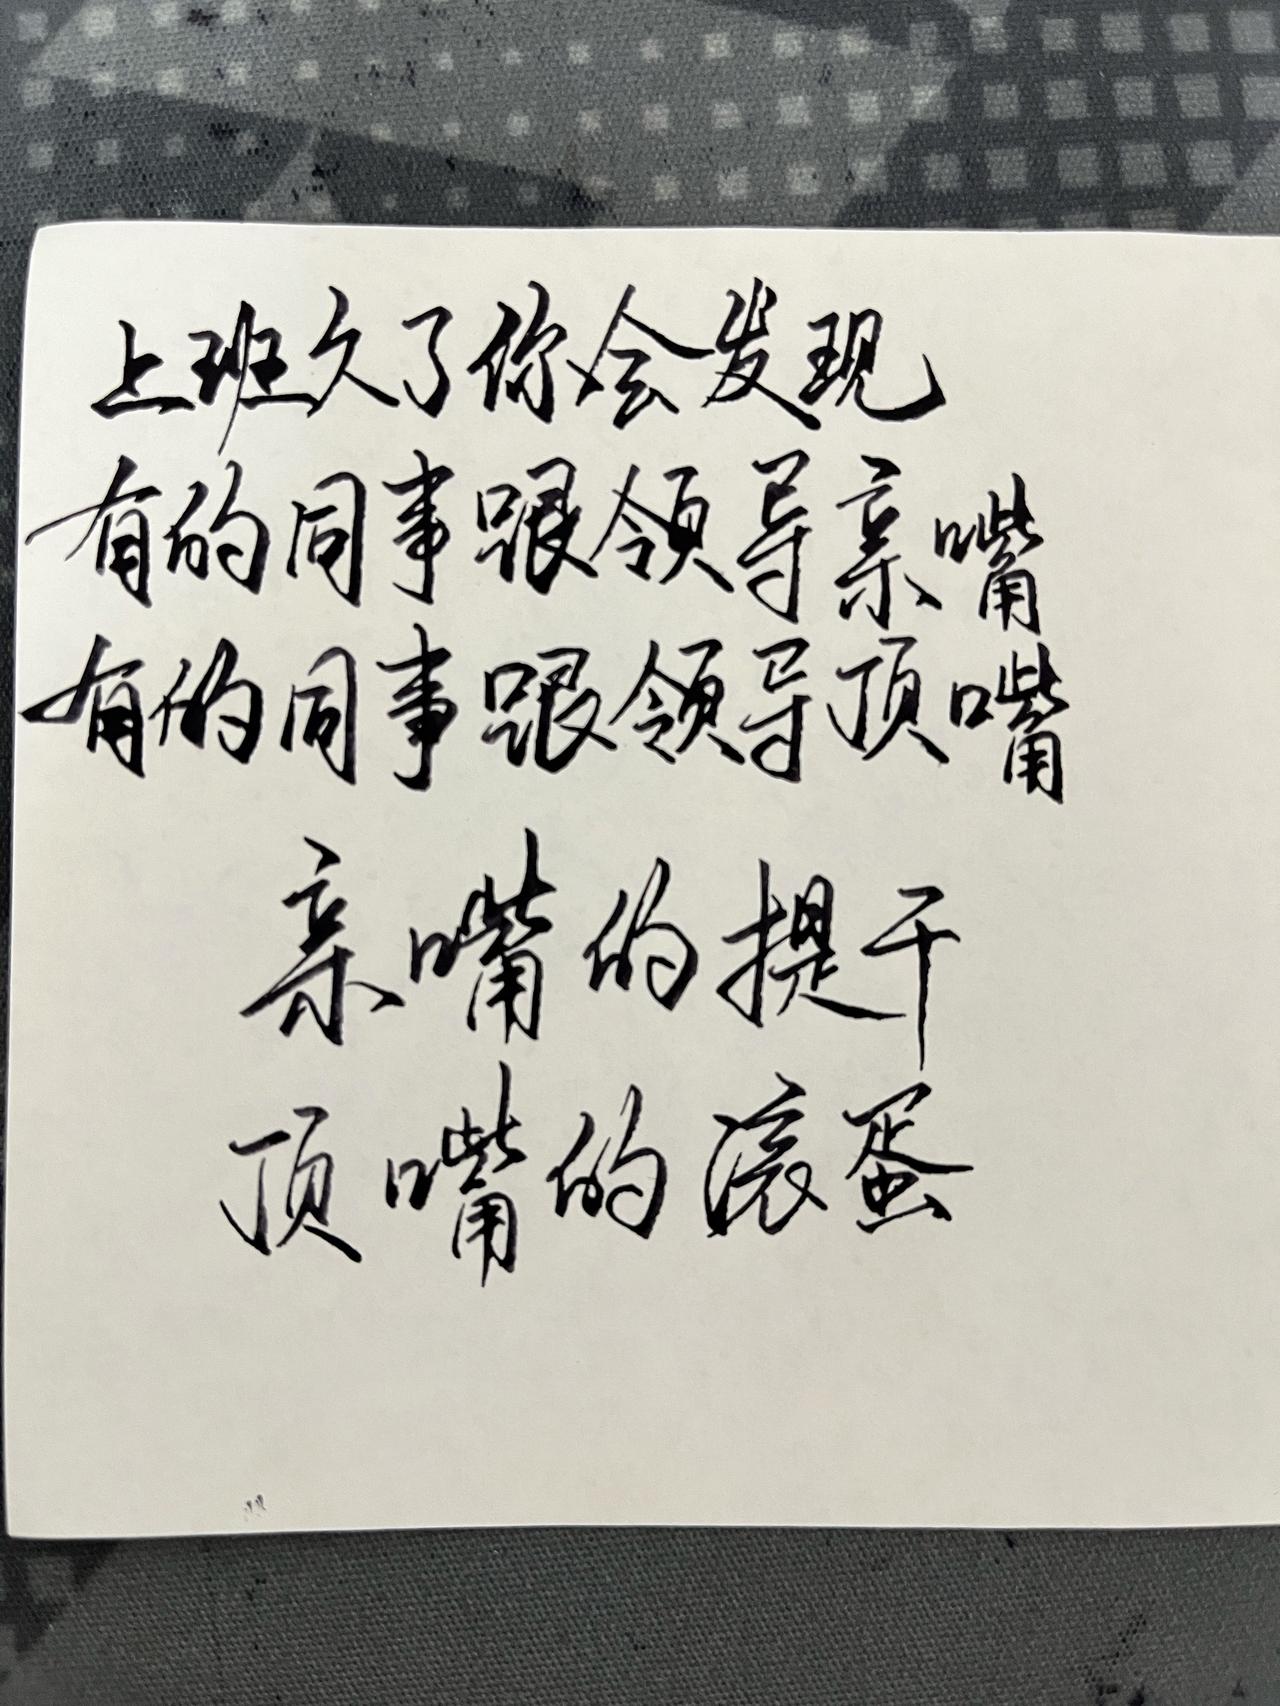 上班久了你会发现
有的同事跟领导亲嘴
有的同事跟领导顶嘴
亲嘴的提干
顶嘴的滚蛋